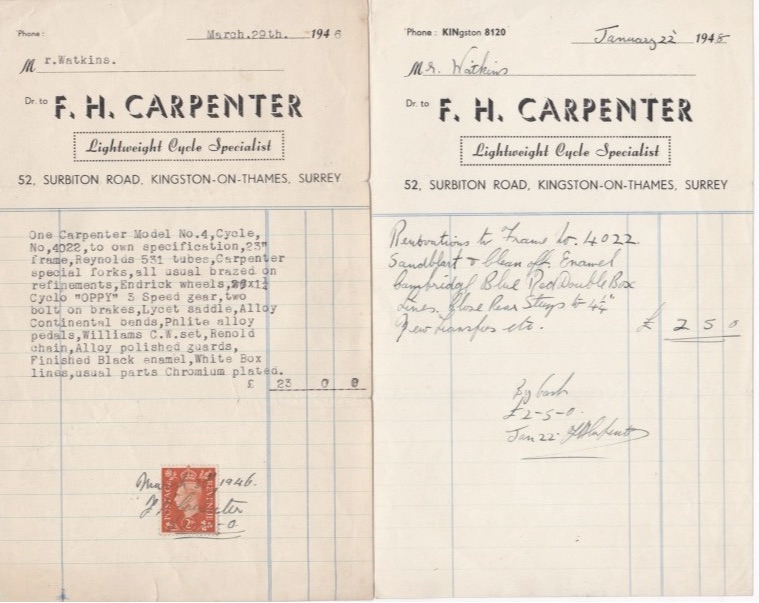 Phone :
March.29th. 1946
Mr.Watkins.
Dr. to F. H. CARPENTER
Lightweight Cycle Specialist
52, SURBITON ROAD, KINGSTON-ON-THAMES, SURREY
One Carpenter Model No.4,Cycle,
No,4022,to own specification,23"
frame,Reynolds 531 tubes,Carpenter
special forks,all usual brazed on
refinements,Endrick wheels,26x1¼
Cyclo "OPPY" 3 Speed gear,two
bolt on brakes,Lycet saddle,Alloy
Continental bends,Phlite alloy
pedals,Williams C.W.set,Renold
chain,Alloy polished guards,
Finished Black enamel,White Box
lines,usual parts Chromium plated.
£ 23 0 0
1946.
POSTAGE REVENUE
-0.
Phone : KINgston 8120
January 22 1948
Mr. Watkins
Dr. to F. H. CARPENTER
Lightweight Cycle Specialist
52, SURBITON ROAD, KINGSTON-ON-THAMES, SURREY
Renovations to Frame No. 4022.
Sandblast & Clean off. Enamel
Cambridge Blue Red Double Box
Lines. Close Rear Stays to 4¼"
New Transfers etc. £ 2 5 0
By Cash
£2-5-0.
Jan 22. F H Carpenter